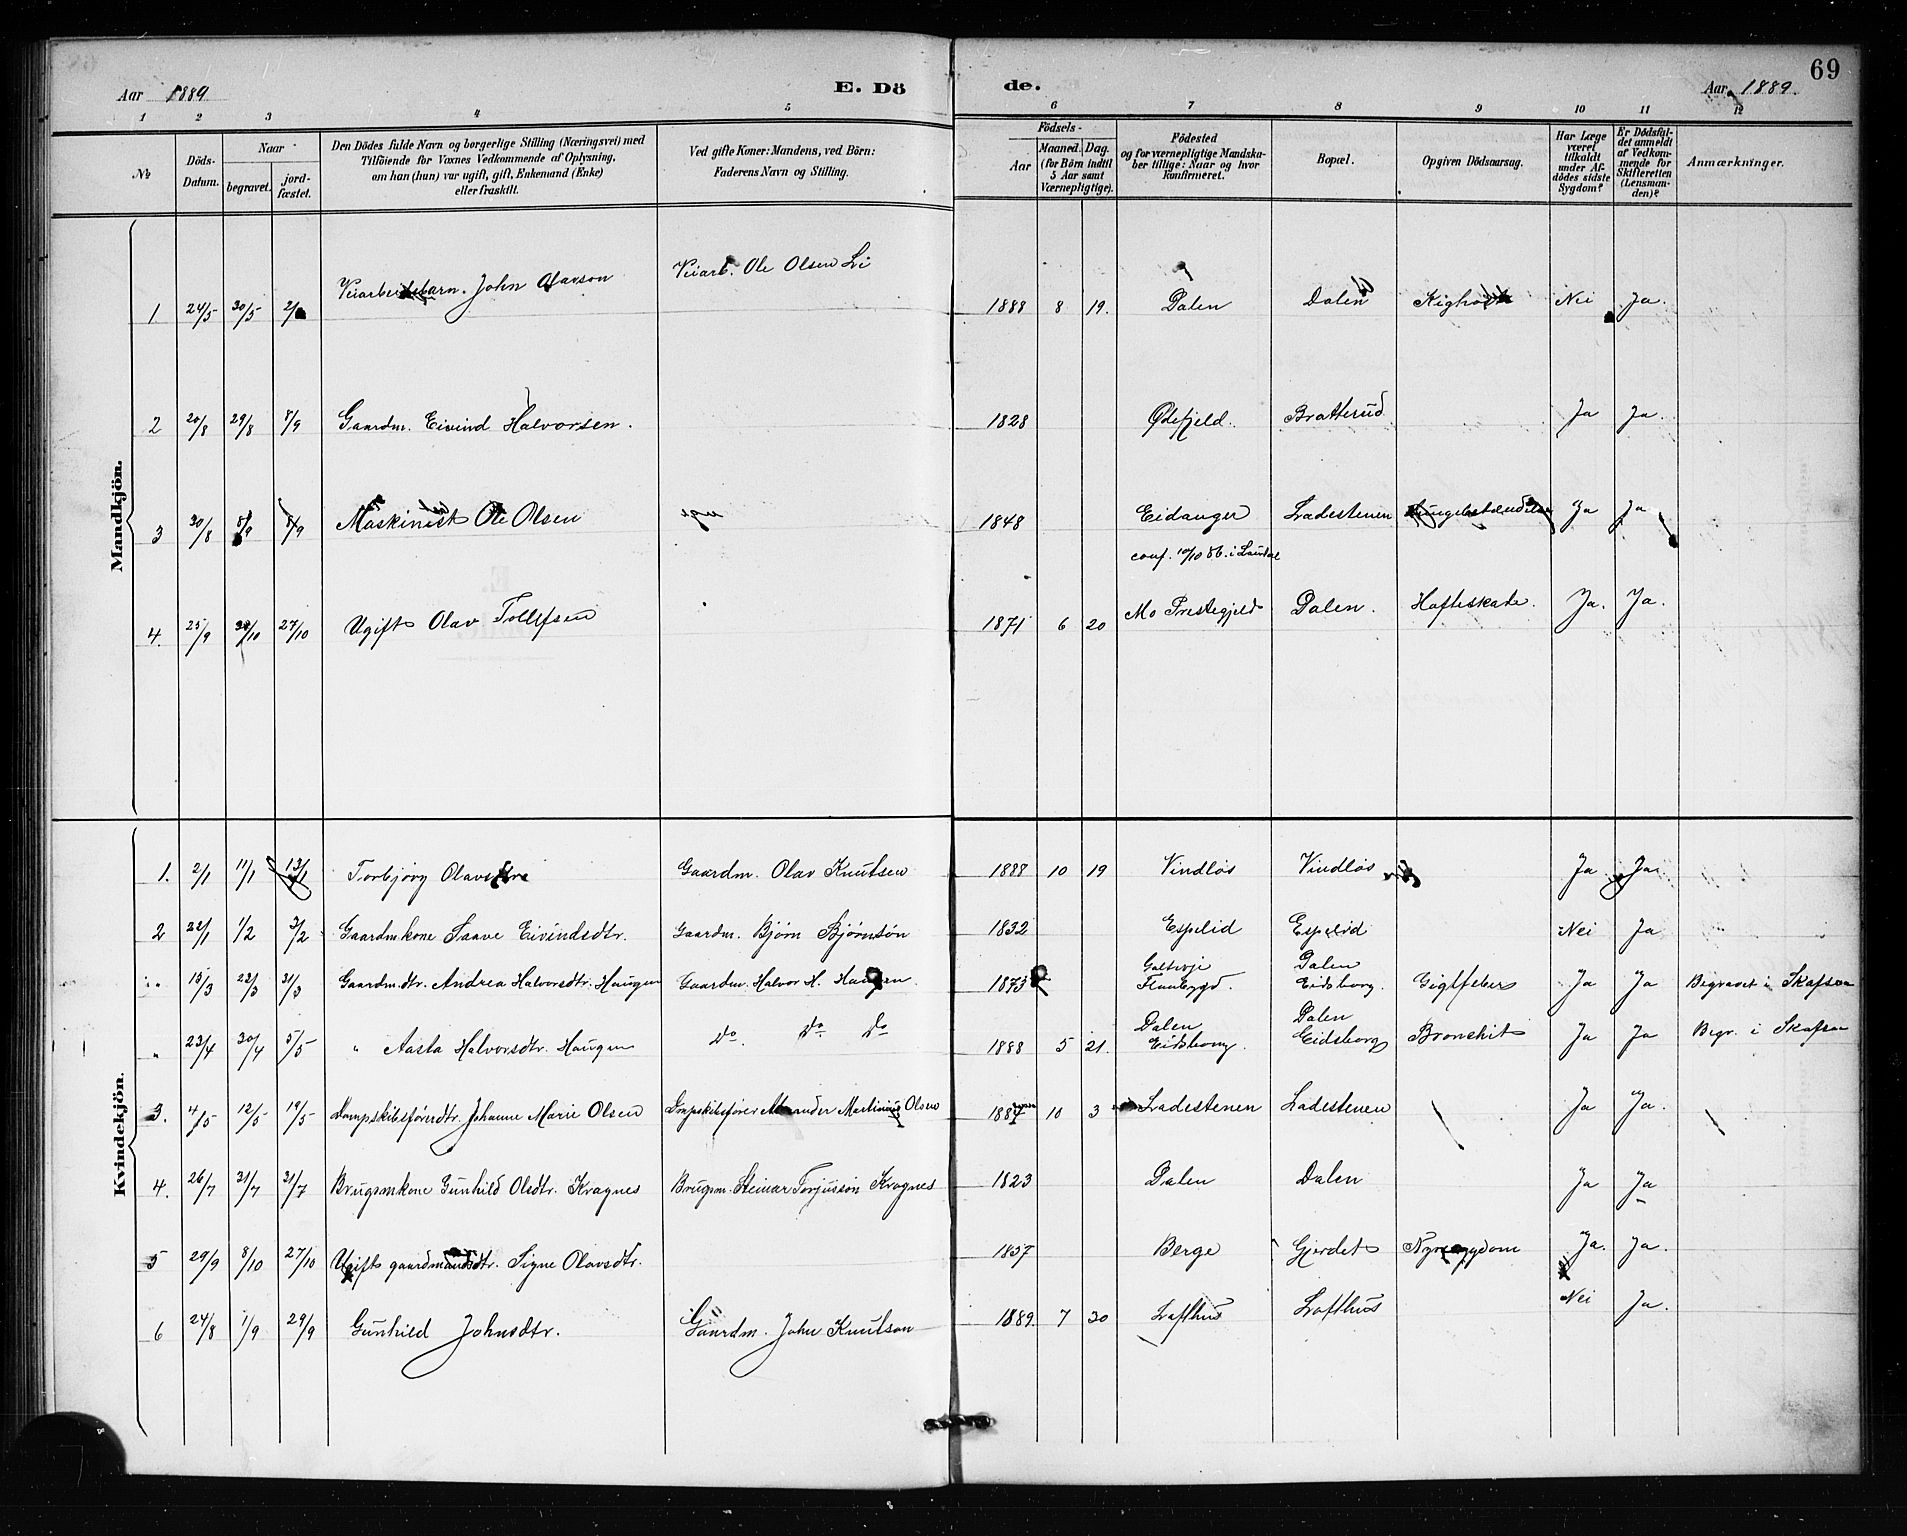 69
Aar 1889
E. Dö
de.
Aar 1889.
1 2 3 4 5 6 7 8 9 10 11 12
№
Döds-Datum.
Naar
begravet.
jord-fæstet.
Den Dödes fulde Navn og borgerlige Stilling (Næringsvei) med
Tilföiende for Voxnes Vedkommende af Oplysning,
om han (hun) var ugift, gift, Enkemand (Enke)
eller fraskilt.
Ved gifte Koner: Mandens, ved Börn:
Faderens Navn og Stilling.
Födsels-
Aar
Maaned. Dag.
(for Börn indtil
5 Aar samt
Værnepligtige).
Födested
og for værnepligtige Mandska-
ber tillige: Naar og hvor
konfirmeret.
Bopæl.
Opgiven Dödsaarsag.
Har Læge
været
tilkaldt
under Af-
dödes sidste
Sygdom?
Er Dödsfal-
det anmeldt
af Vedkom-
mende for
Skifteretten
(Lensman-
den)?
Anmærkninger.
Mandkjön.
1 24/5 30/5 John Olavson Veiarb. Ole Olsen Li 1888 8 19. Dalen Dalen Kighoste Nei Ja.
2 20/8 29/8 8/9 Gaardm. Eivind Halvorsen. 1828 Ødefjeld. Bratterud Ja Ja.
3 30/8 8/9 8/9 Maskinist Ole Olsen 1848 Eidanger Ladestenen Lungebetændelse Ja Ja
conf. 10/10 86. i
4. 25/9 27/10 Ugift Olav Tollefsen 1871 6 20 Mo Prestegjeld Dalen. Hofteskade. Ja. Ja.
Kvindekjön.
1. 2/1 11/1 13/1 Torbjörg Gaardm. Olav Knutsen 1888 10 19 Vindlös Vindlös Ja Ja.
2 22/1 1/2 3/2 Gaardmkone Saave Eivindsdtr. Gaardm. Bjørn Bjørnsön 1832 Espelid Espelid Nei Ja
15/3 22/3 31/3 Gaardm.dtr. Andrea Halvorsdtr. Haugen Gaardm. Halvor H. Haugen. 1873 Dalen Eidsborg. Gigtfeber Ja Ja Begravet i Skafsaa
" 23/4 30/4 5/5 " Aasta Halvorsdtr. Haugen Do Do Do 1888 5 21. Dalen Eidsborg. Dalen Eidsborg Bronchit Ja Ja Begr. i Skafsaa
3. 4/5 12/5 19/5 Dampskibsförerdtr. Johanne Marie Olsen Dmpskibsförer Martinius Olsen 1887 10 3 Ladestenen Ladestenen Ja Ja.
4. 26/7 31/7 31/7 Brugsmkone Gunhild Olsdtr. Kragnes Brugsm. Steinar Torjusson Kragnes 1823 Dalen Dalen Ja Ja
5 29/9 8/10 27/10 Ugift gaardmandsdtr. Signe Olavsdtr. 1837 Berge Gjerdet Nyresygdom Ja. Ja.
6 24/8 1/9 29/9 Gunhild Johnsdtr. Gaardm. John Knutson 1889. 7 30 Lofthus Lofthus Nei Ja.